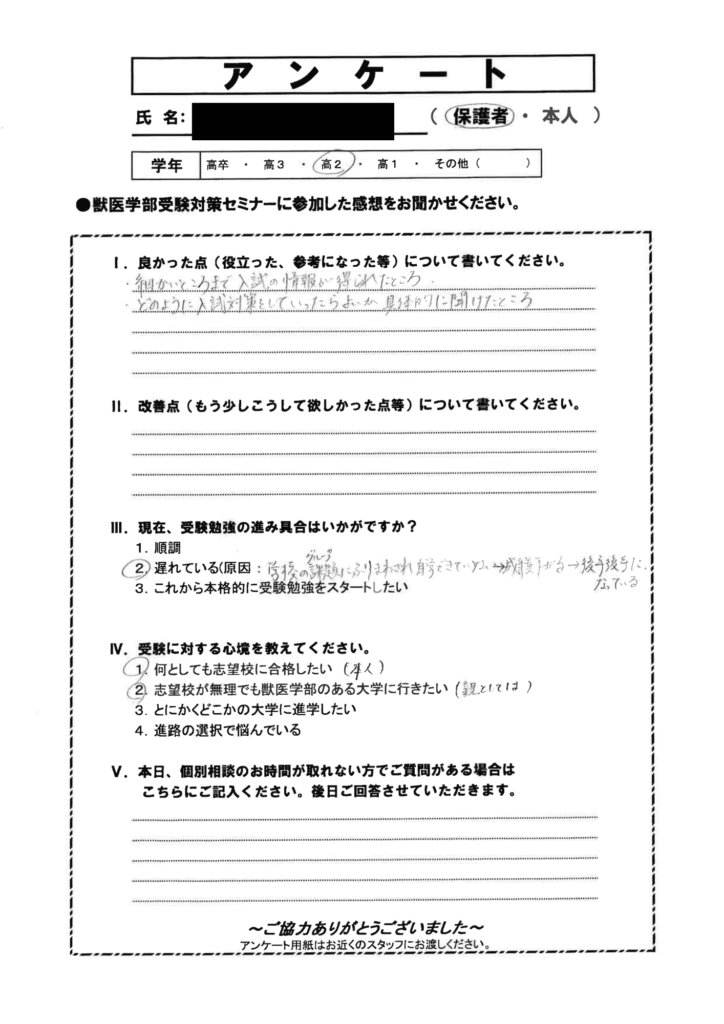 アンケート
氏 名:
( 保護者 ・ 本人 )
学年 高卒 ・ 高3 ・ 高2 ・ 高1 ・ その他 ( )
●獣医学部受験対策セミナーに参加した感想をお聞かせください。
Ⅰ. 良かった点(役立った、参考になった等)について書いてください。
・細かいところまで入試の情報が得られたところ.
・どのように入試対策をしていったらよいか具体的に聞けたところ
Ⅱ. 改善点(もう少しこうして欲しかった点等)について書いてください。
Ⅲ. 現在、受験勉強の進み具合はいかがですか?
1. 順調
グループ
2. 遅れている(原因 : 学校の課題にふりまわされ自学できていない→成績下がる→後手後手に
なっている
3. これから本格的に受験勉強をスタートしたい
Ⅳ. 受験に対する心境を教えてください。
1. 何としても志望校に合格したい (本人)
2. 志望校が無理でも獣医学部のある大学に行きたい (親としては)
3. とにかくどこかの大学に進学したい
4. 進路の選択で悩んでいる
Ⅴ. 本日、個別相談のお時間が取れない方でご質問がある場合は
こちらにご記入ください。後日ご回答させていただきます。
~ご協力ありがとうございました~
アンケート用紙はお近くのスタッフにお渡しください。